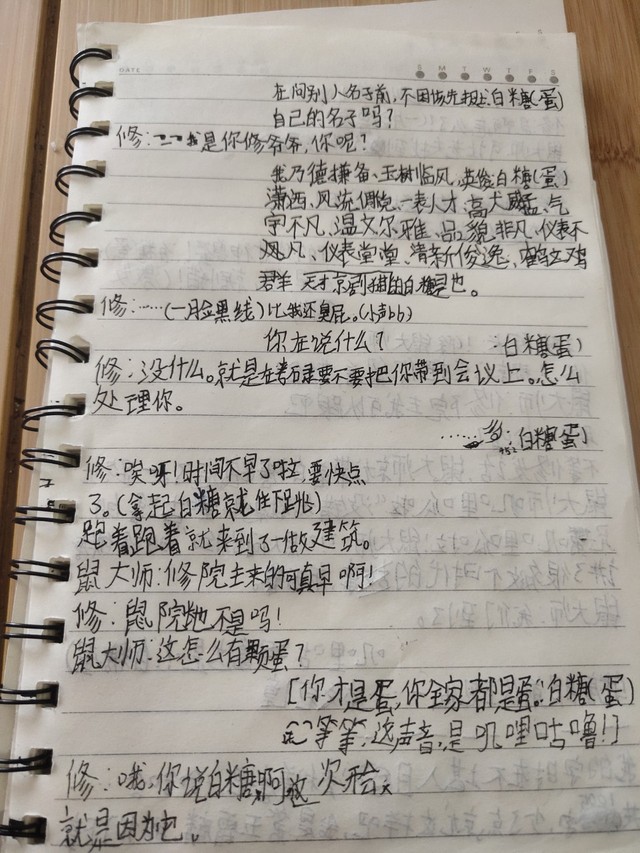 DATE
S M T W T F S
在问别人名子前，不因该先报上白糖(蛋)
自己的名子吗？
修：我是你修爷爷，你呢？
我乃德才兼备、玉树临风、英俊白糖(蛋)
潇洒、风流倜傥、一表人才、高大威猛、气
宇不凡、温文尔雅、品貌非凡、仪表不
凡、仪表堂堂、清新俊逸、鹤立鸡
群 天才京剧猫的白糖是也。
修：……(一脸黑线)比我还臭屁。(小声bb)
你在说什么？ ：白糖(蛋)
修：没什么。就是在考虑要不要把你带到会议上。怎么
处理你。
…… ：白糖(蛋)
修：唉呀！时间不早了啦，要快点
了。(拿起白糖就往下跳)
跑着跑着就来到了一做建筑。
鼠大师：修院主来的可真早啊！
修：鼠院 也不是吗！
鼠大师：这怎么有颗蛋？
[你才是蛋，你全家都是蛋：白糖(蛋)
等等，这声音，是叽哩咕噜！]
修：哦，你说白糖啊 次
就是因为它。